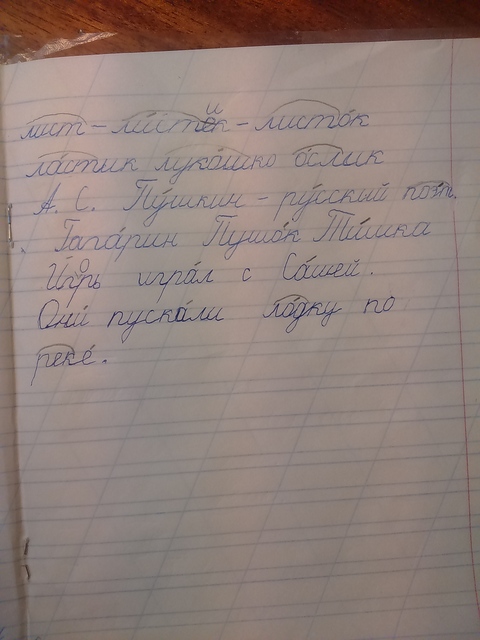 лист – листик – листок
ластик лукошко ослик
А. С. Пушкин – русский поэт.
Гагарин Пушок Тишка
Игорь играл с Сашей.
Они пускали лодку по
реке.